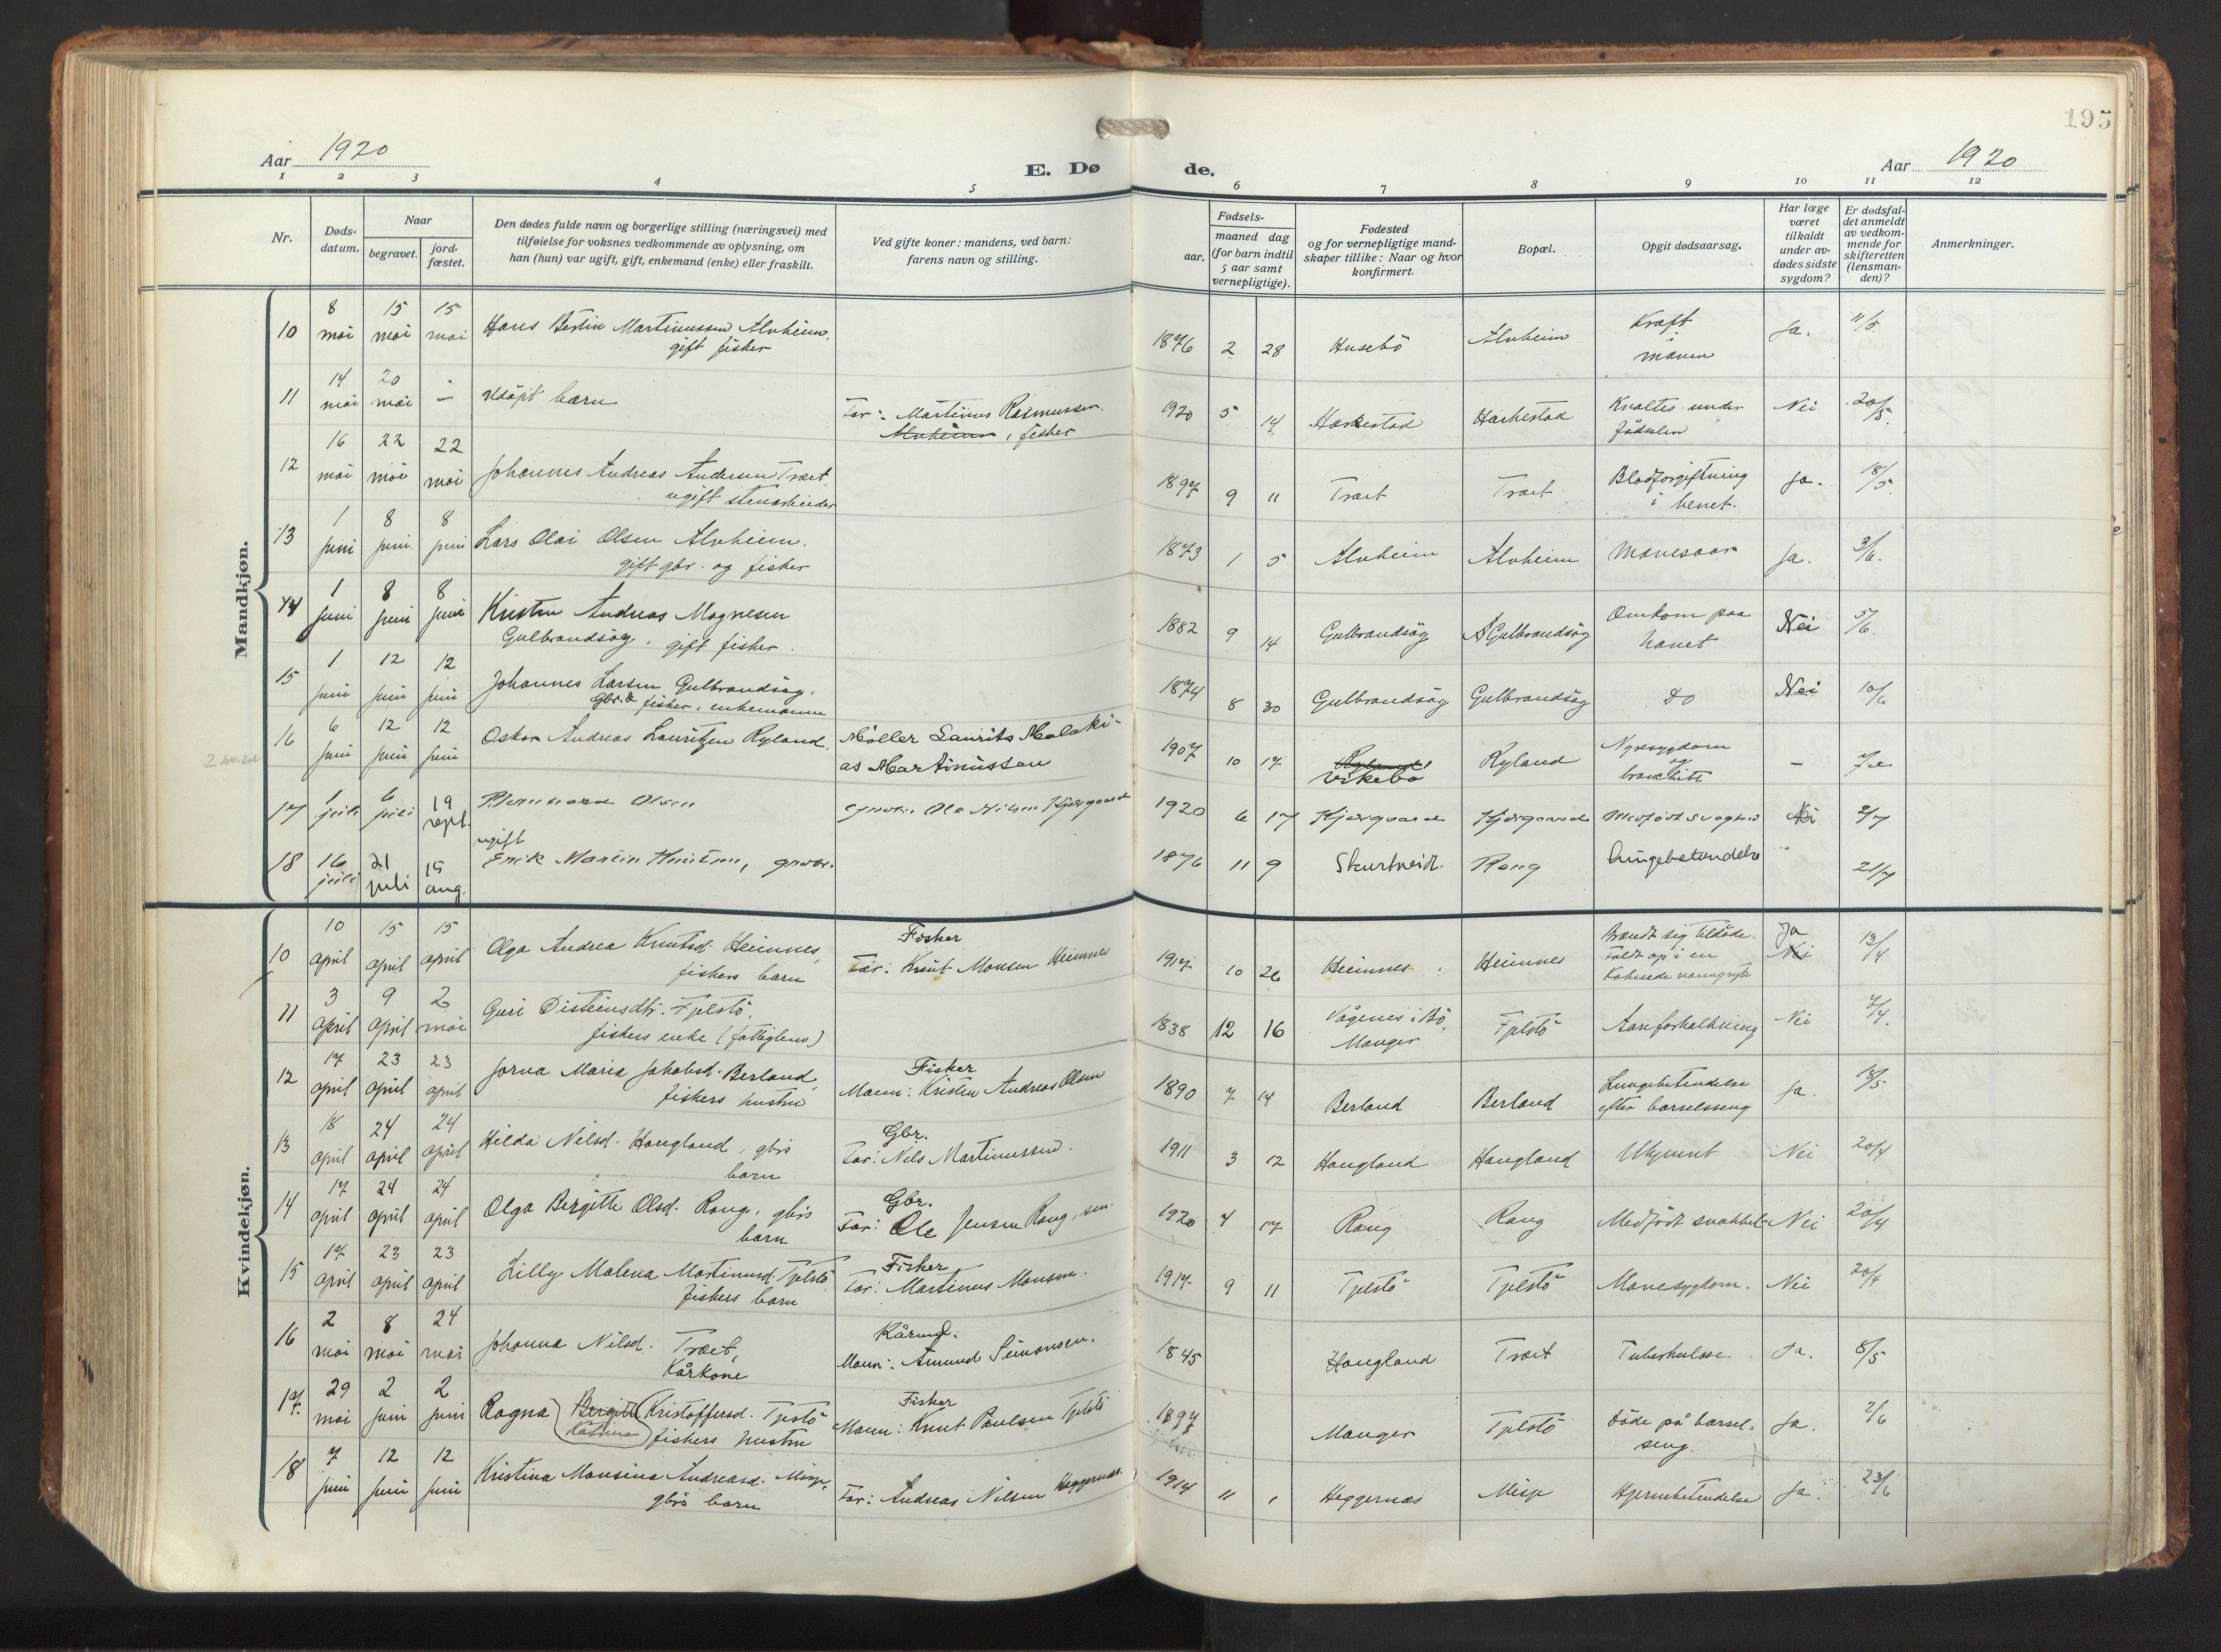 195
Aar 1920
E. Dø
de.
Aar 1920
1 2 3 4 5 6 7 8 9 10 11 12
Nr.
Døds-
datum.
Naar
begravet.
jord-
fæstet.
Den dødes fulde navn og borgerlige stilling (næringsvei) med
tilføielse for voksnes vedkommende av oplysning, om
han (hun) var ugift, gift, enkemand (enke) eller fraskilt.
Ved gifte koner: mandens, ved barn:
farens navn og stilling.
Fødsels-
aar.
maaned dag
(for barn indtil
5 aar samt
vernepligtige).
Fødested
og for vernepligtige mand-
skaper tillike: Naar og hvor
konfirmert.
Bopæl.
Opgit dødsaarsag.
Har læge
været
tilkaldt
under av-
dødes sidste
sygdom?
Er dødsfal-
det anmeldt
av vedkom-
mende for
skifteretten
(lensman-
den)?
Anmerkninger.
Mandkjøn.
10 8 mai 15 mai 15 mai Hans Bertin Martinussen Alvheim,
gift fisker
1876 2 28 Husebö Alvheim Kræft i maven Ja. 11/5.
11 14 mai 20 mai — Udöpt barn
Far: Martinus Rasmussen
Alvheim, fisker
1920 5 14 Harkestad Harkestad Kvaltes under födselen Nei 20/5.
12 16 mai 22 mai 22 mai Johannes Andreas Andersen Træet,
ugift stenarbeider
1897 9 11 Træet Træet Blodforgiftning i benet. Ja. 18/5.
13 1 juni 8 juni 8 juni Lars Olai Olsen Alvheim.
gift gbr. og fisker
1873 1 5 Alvheim Alvheim Mavesaar Ja. 3/6.
14 1 juni 8 juni 8 juni Kristen Andreas Magnesen
Gulbrandsög, gift fisker.
1882 9 14 Gulbrandsög Gulbrandsög Omkom paa havet Nei 5/6.
15 1 juni 12 juni 12 juni Johannes Larsen Gulbrandsög,
Gbr. & fisker, enkemann
1874 8 30 Gulbrandsög Gulbrandsög Do Nei 10/6
16 6 juni 12 juni 12 juni Oskar Andreas Lauritzen Ryland,
Møller Laurits Malaki-
as Martinussen
1907 10 17 Ryland Vikebø Ryland Nyresygdom og bronchitt —
17 1 juli 6 juli 19 sept. Olsen
Ole Nilsen Kjærgaard
1920 6 17 Kjærgaard Kjærgaard Medfødt svaghed Nei 2/7
18 16 juli 21 juli 15 aug. ugift
Erik Martin Knutsen, gaardbr.
1876 11 9 Skurtveit Rong Lungebetændelse " 21/7
Kvindekjøn.
10 10 april 15 april 15 april Olga Andrea Knutsd. Heimnes,
fiskers barn
Fisker
Far: Knut Monsen Heimnes
1917 10 26 Heimnes Heimnes Brændt sig tildöde. Faldt op i en kokende Ja Nei 13/4
11 3 april 9 april 2 mai Guri Östeinsdtr. Tjelstö,
fiskers enke (fattiglem)
1838 12 16 Vågenes i Bö, Manger Tjelstö Aareforkalkning Nei 7/4.
12 17 april 23 april 23 april Jorna Maria Jakobsd. Berland,
fiskers hustru
Fisker
Mann: Kristen Andreas Olsen
1890 7 14 Berland Berland Lungebetændelse efter barselseng Ja. 18/5
13 18 april 24 april 24 april Hilda Nilsd. Haugland, gbrs
barn
Gbr.
Far: Nils Martinussen.
1911 3 12 Haugland Haugland Ukjennt Nei 20/4
14 17 april 24 april 24 april Olga Bergitte Olsd. Rong, gbrs
barn
Gbr.
Far: Ole Jensen Rong, sen.
1920 4 17 Rong Rong Medfödt svakhet Nei 20/4
15 17 april 23 april 23 april Lilly Malena Martinusd. Tjelstö
fiskers barn
Fisker
Far: Martinus Monsen.
1917 9 11 Tjelstö Tjelstö Mavesygdom. Nei 20/4
16 2 mai 8 mai 24 mai Johanna Nilsd. Træet,
Kårkone
Kårmd.
Mann: Amund Simonsen.
1845 Haugland Træet Tuberkulose Ja. 8/5
17. 29 mai 2 juni 2 juni Ragna (Bergitte Katrina) Kristoffersd. Tjelstö
fiskers hustru
Fisker
Mann: Knut Paulsen Tjelstö
1897 Manger Tjelstö Döde på barsel-seng. Ja. 2/6
18 7 juni 12 juni 12 juni Kristina Monsina Andreasd. Misje,
gbrs barn
Far: Andreas Nilsen Heggernæs.
1914 11 1 Heggernæs Misje Hjernebetendelse Ja. 23/6